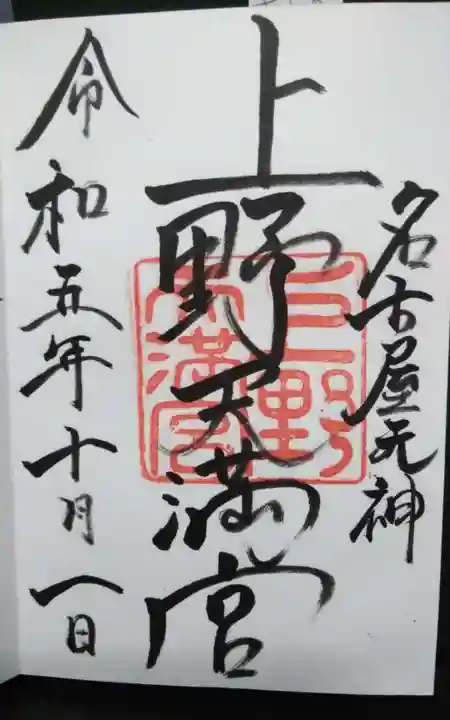 名古屋天神
上野天満宮
上野
天満宮
令和五年十月一日